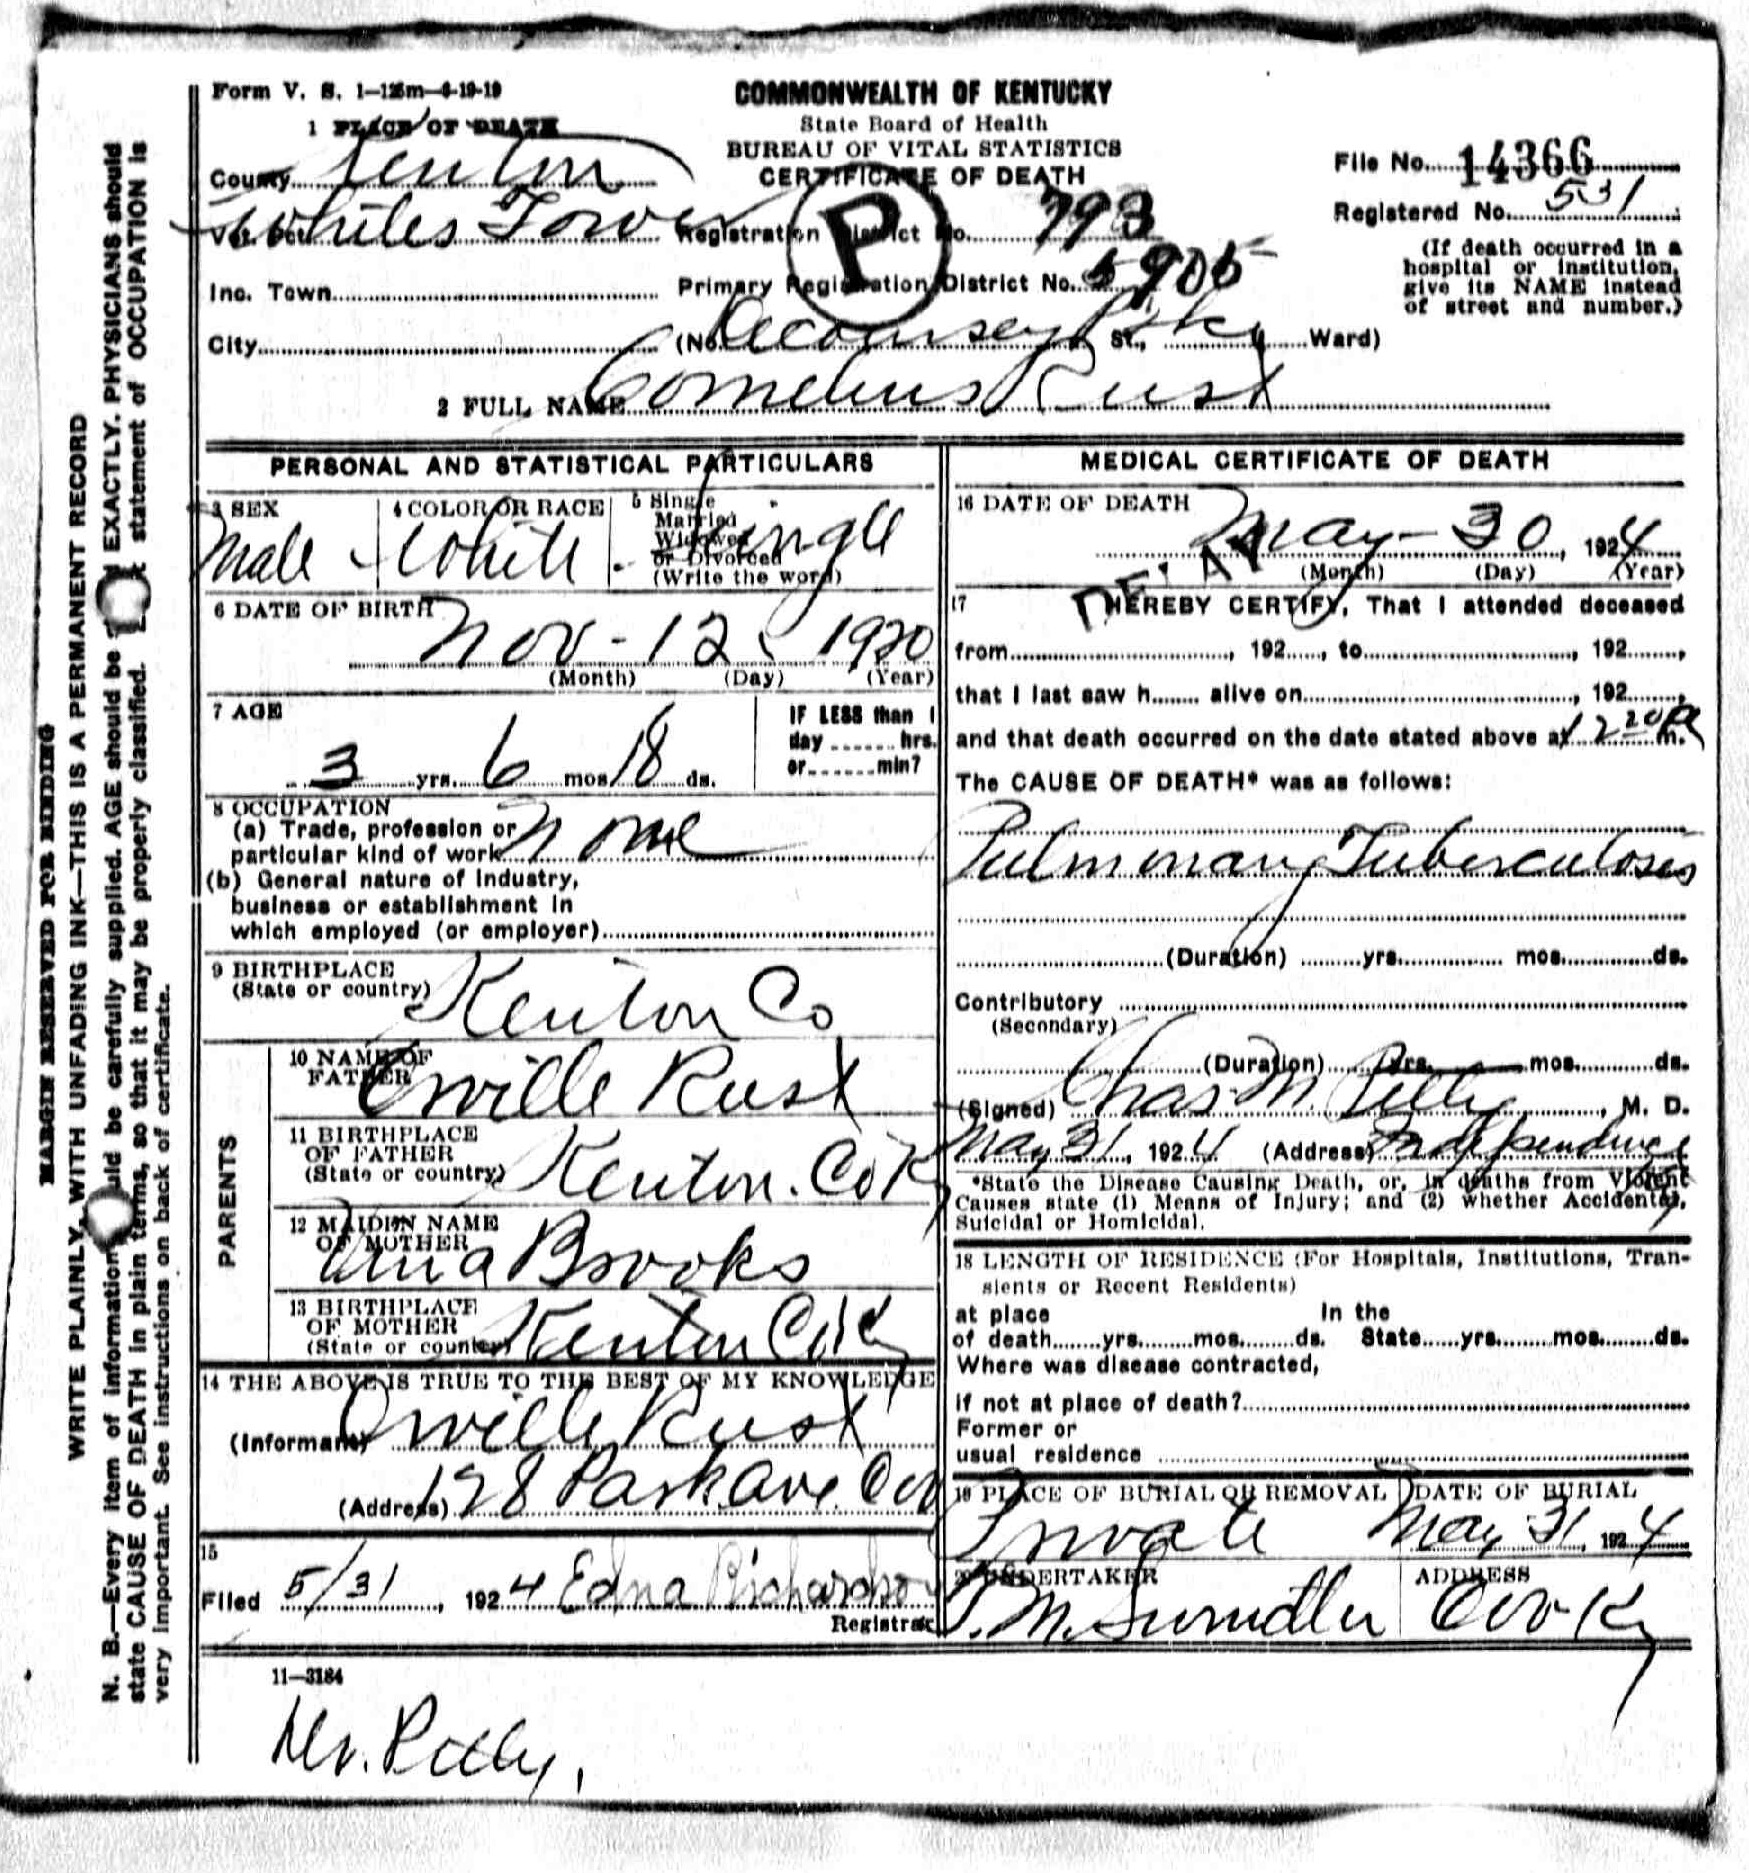 Form V. S. 1—125m—6-19-19
COMMONWEALTH OF KENTUCKY
State Board of Health
BUREAU OF VITAL STATISTICS
CERTIFICATE OF DEATH
1 PLACE OF DEATH
County Kenton
File No. 14366
Registered No. 531
Vot. Pct. Whites Tower
Registration District No. 793
P
(If death occurred in a
hospital or institution,
give its NAME instead
of street and number.)
Inc. Town
Primary Registration District No. 5905
City
(No. Decoursey Pike St., Ward)
2 FULL NAME Cornelius Rust
PERSONAL AND STATISTICAL PARTICULARS
3 SEX
Male
4 COLOR OR RACE
White
5 Single
Married
Widowed
or Divorced
(Write the word)
Single
6 DATE OF BIRTH
Nov - 12 1920
(Month) (Day) (Year)
7 AGE
3 yrs. 6 mos. 18 ds.
IF LESS than 1
day hrs.
or min?
8 OCCUPATION
(a) Trade, profession or
particular kind of work None
(b) General nature of Industry,
business or establishment in
which employed (or employer)
9 BIRTHPLACE
(State or country)
Kenton Co
PARENTS
10 NAME OF
FATHER
Orville Rust
11 BIRTHPLACE
OF FATHER
(State or country)
Kenton. Co Ky
12 MAIDEN NAME
OF MOTHER
Brooks
13 BIRTHPLACE
OF MOTHER
(State or country)
Kenton Co Ky
14 THE ABOVE IS TRUE TO THE BEST OF MY KNOWLEDGE
(Informant) Orville Rust
(Address) 128 Park Ave. Cov
15
Filed 5/31, 1924 Edna Richardson
Registrar
MEDICAL CERTIFICATE OF DEATH
16 DATE OF DEATH
May - 30, 1924
(Month) (Day) (Year)
DELAY
17 I HEREBY CERTIFY, That I attended deceased
from, 192, to, 192,
that I last saw h alive on, 192,
and that death occurred on the date stated above at 12 20 P m.
The CAUSE OF DEATH* was as follows:
Pulmonary Tuberculosis
(Duration) yrs. mos. ds.
Contributory
(Secondary)
(Duration) yrs. mos. ds.
(Signed) Chas. M. , M. D.
May 31, 1924 (Address) Independence
*State the Disease Causing Death, or, in deaths from Violent
Causes state (1) Means of Injury; and (2) whether Accidental,
Suicidal or Homicidal.
18 LENGTH OF RESIDENCE (For Hospitals, Institutions, Tran-
sients or Recent Residents)
at place In the
of death yrs. mos. ds. State yrs. mos. ds.
Where was disease contracted,
If not at place of death?
Former or
usual residence
19 PLACE OF BURIAL OR REMOVAL
Private
DATE OF BURIAL
May 31, 1924
20 UNDERTAKER
ADDRESS
Cov Ky
11—3184
MARGIN RESERVED FOR BINDING
WRITE PLAINLY, WITH UNFADING INK—THIS IS A PERMANENT RECORD
N. B.—Every item of information should be carefully supplied. AGE should be EXACTLY. PHYSICIANS should
state CAUSE OF DEATH in plain terms, so that it may be properly classified. statement of OCCUPATION is
very important. See instructions on back of certificate.